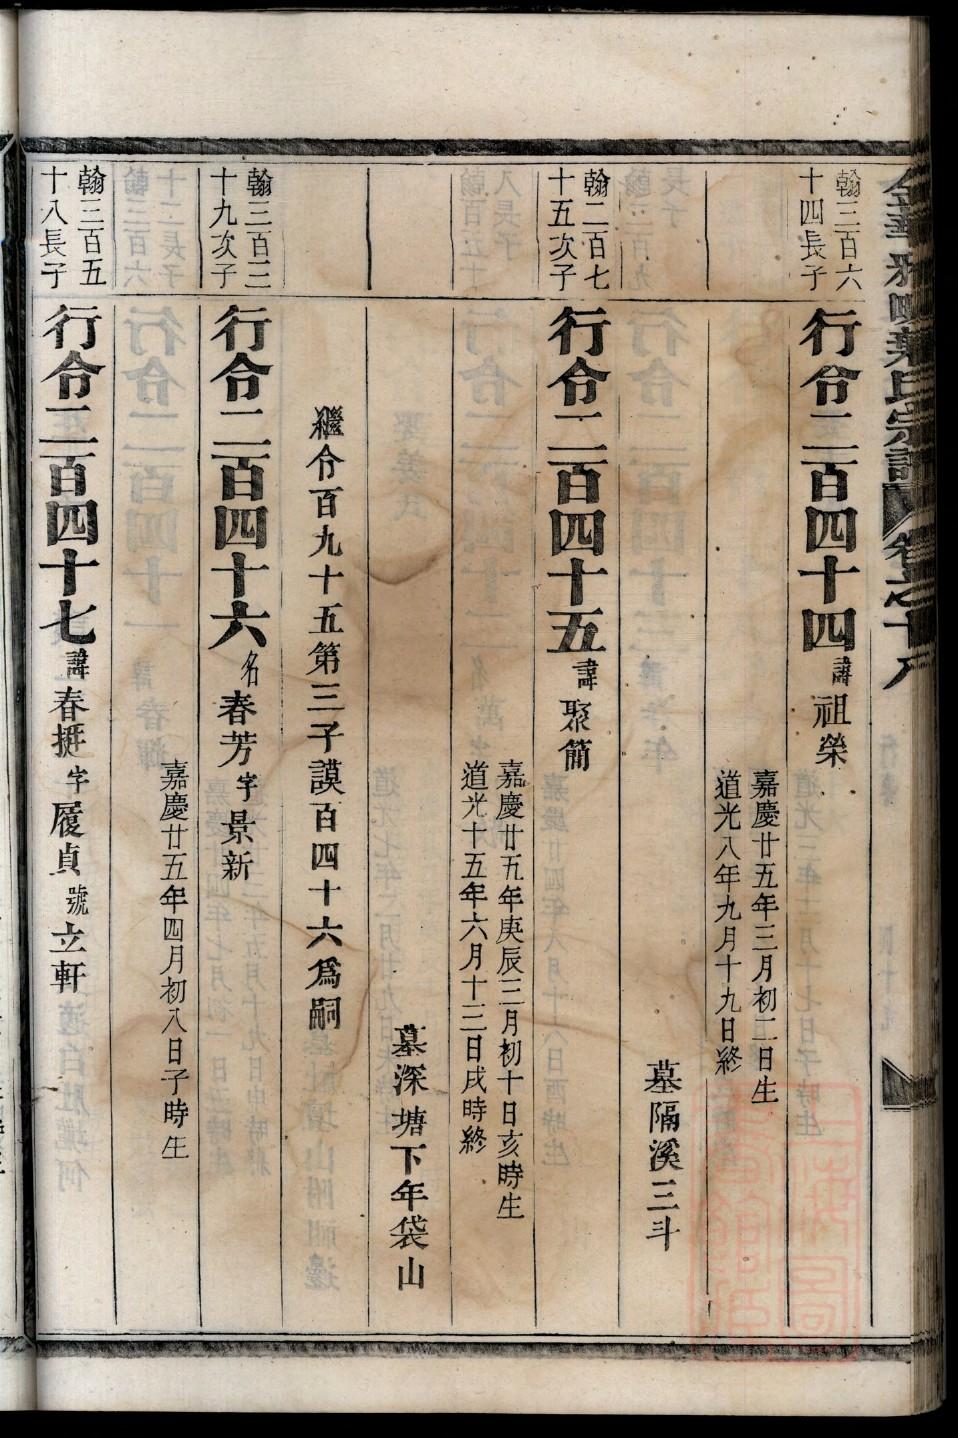 翰三百六
十四長子
行令二百四十四諱祖榮
嘉慶廿五年三月初二日生
道光八年九月十九日終
墓隔溪三斗
翰二百七
十五次子
行令二百四十五諱聚簡
嘉慶廿五年庚辰三月初十日亥時生
道光十五年六月十三日戌時終
墓深塘下年袋山
繼令百九十五第三子謨百四十六爲嗣
翰三百三
十九次子
行令二百四十六名春芳字景新
嘉慶廿五年四月初八日子時生
翰三百五
十八長子
行令二百四十七諱春挺字履貞號立軒